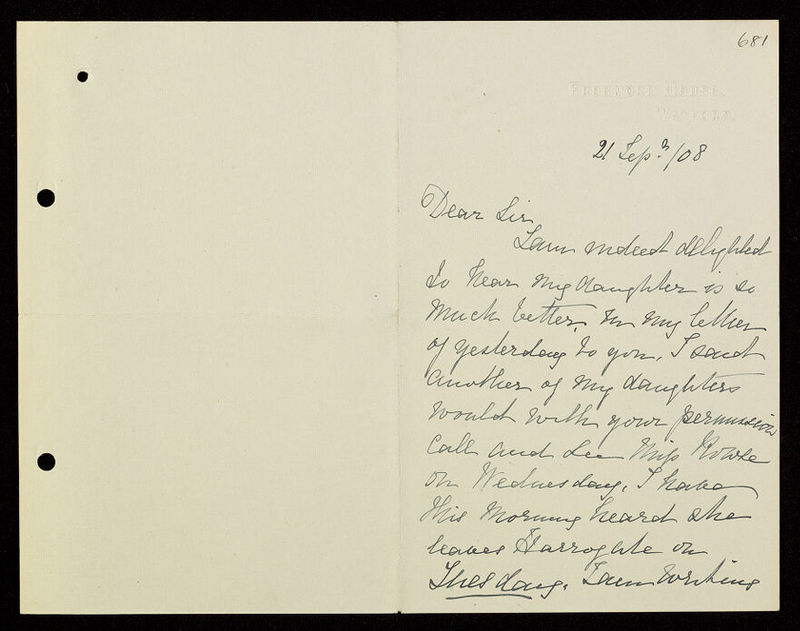 681
House,
Watford.
21 Sep. /08
Dear Sir
I am indeed delighted
to hear my daughter is so
much better, In my letter
of yesterday to you, I said
another of my daughters
would with your permission
Call and see Miss Rowse
on Wednesday, I have
this morning heard she
leaves Harrogate on
Tuesday. I am writing